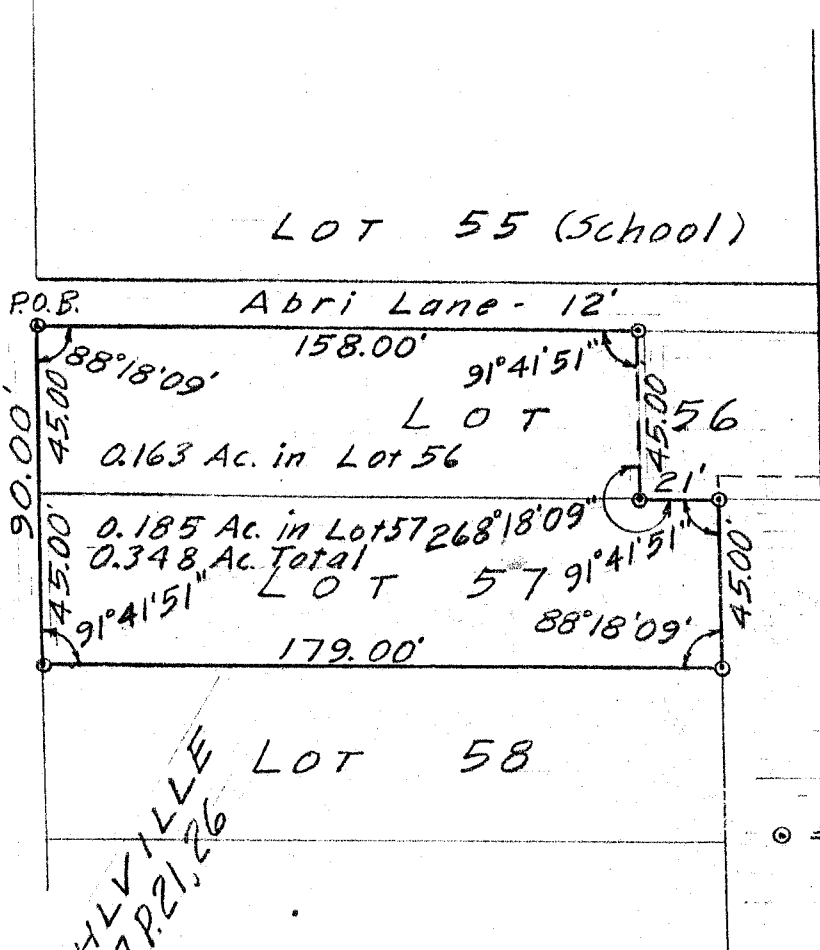 LOT 55 (School)
P.O.B.
Abri Lane - 12'
158.00'
88°18'09'
91°41'51"
45.00
45.00
90.00'
LOT 56
0.163 Ac. in Lot 56
21'
0.185 Ac. in Lot 57
268°18'09"
91°41'51"
0.348 Ac. Total
LOT 57
45.00'
45.00'
91°41'51"
88°18'09'
179.00'
LOT 58
HLVILLE
P.21,26
=